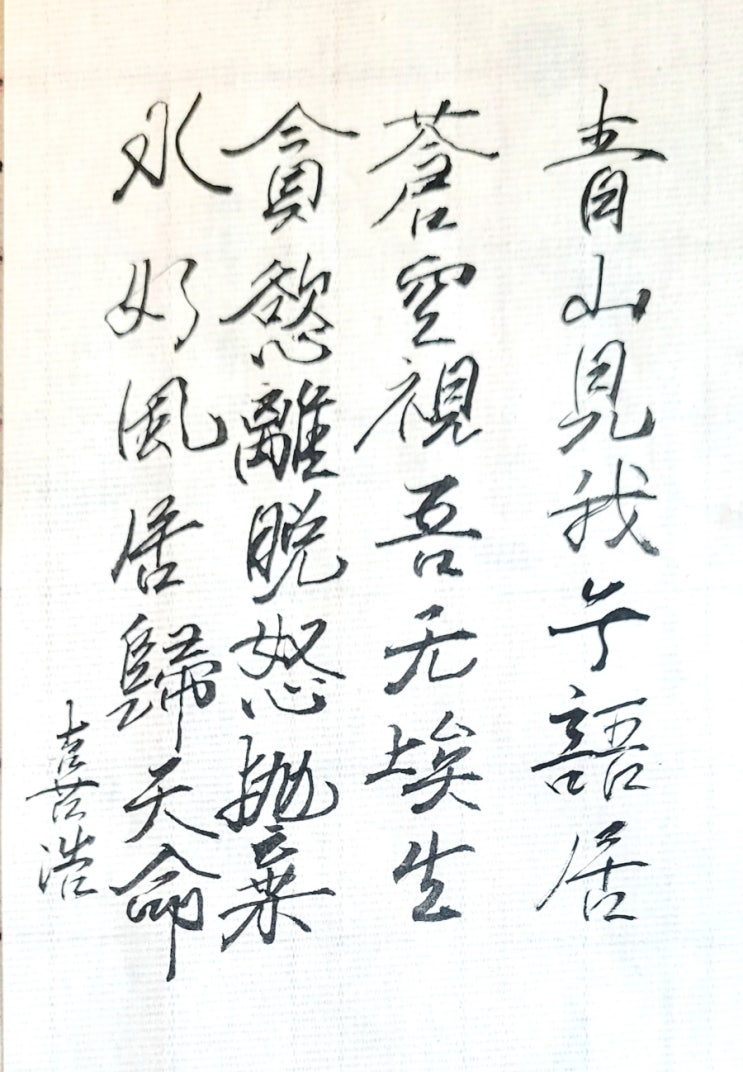 青山見我兮語居
蒼空視吾无埃生
貪慾離脫怒拋棄
水如風居歸天命